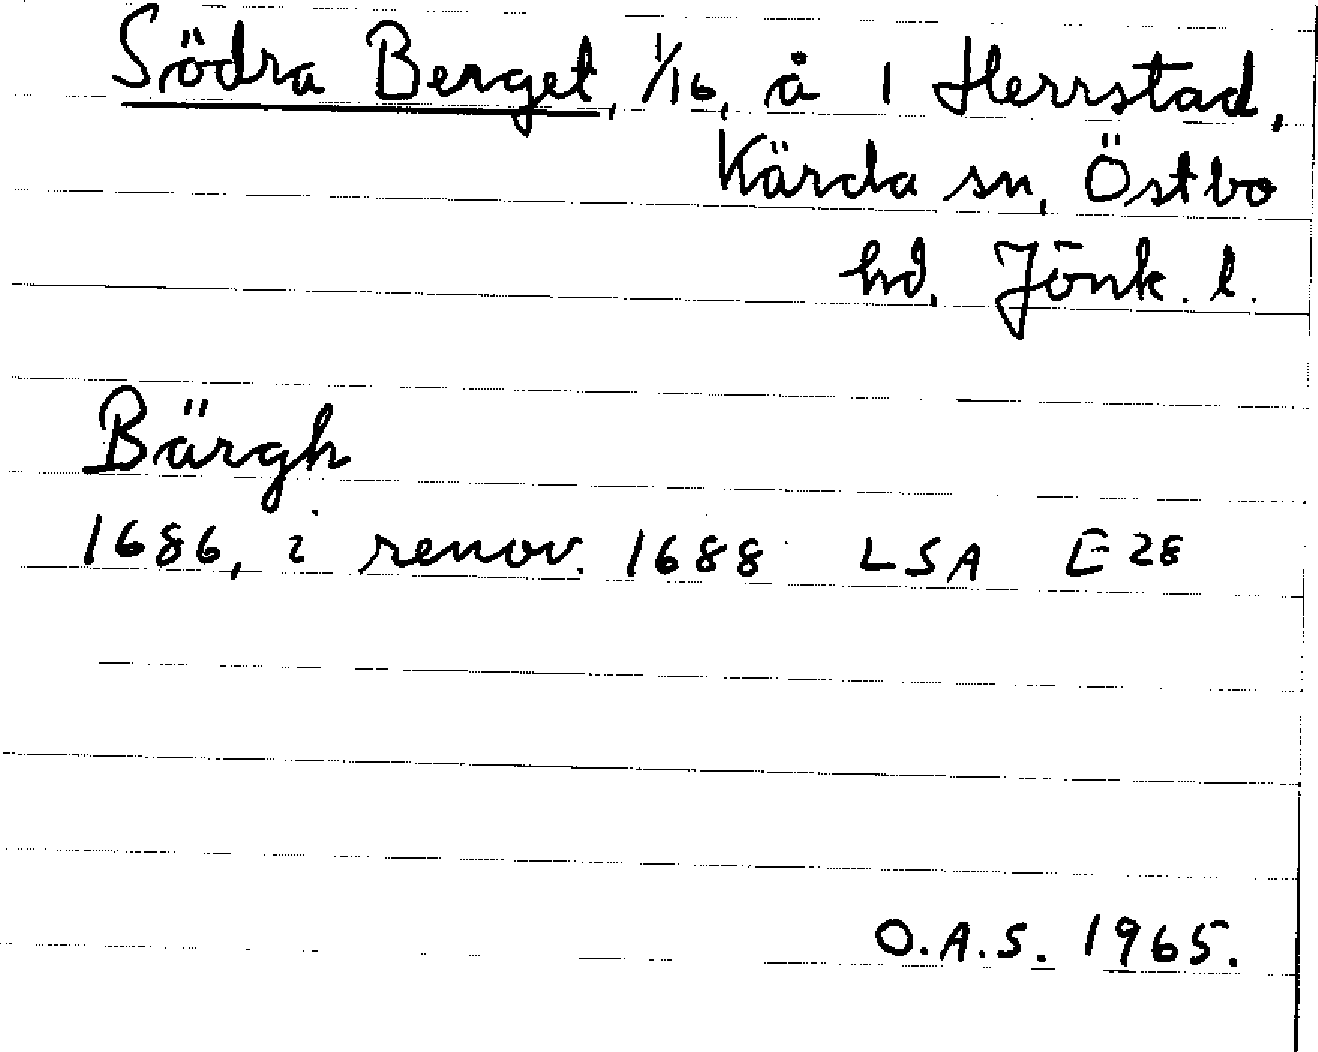 Södra Berget, 1/16, å 1 Herrstad,
Kärda sn, Östbo
hd, Jönk. l.
Bärgh
1686, i renov. 1688 LSA E 28
O.A.S. 1965.